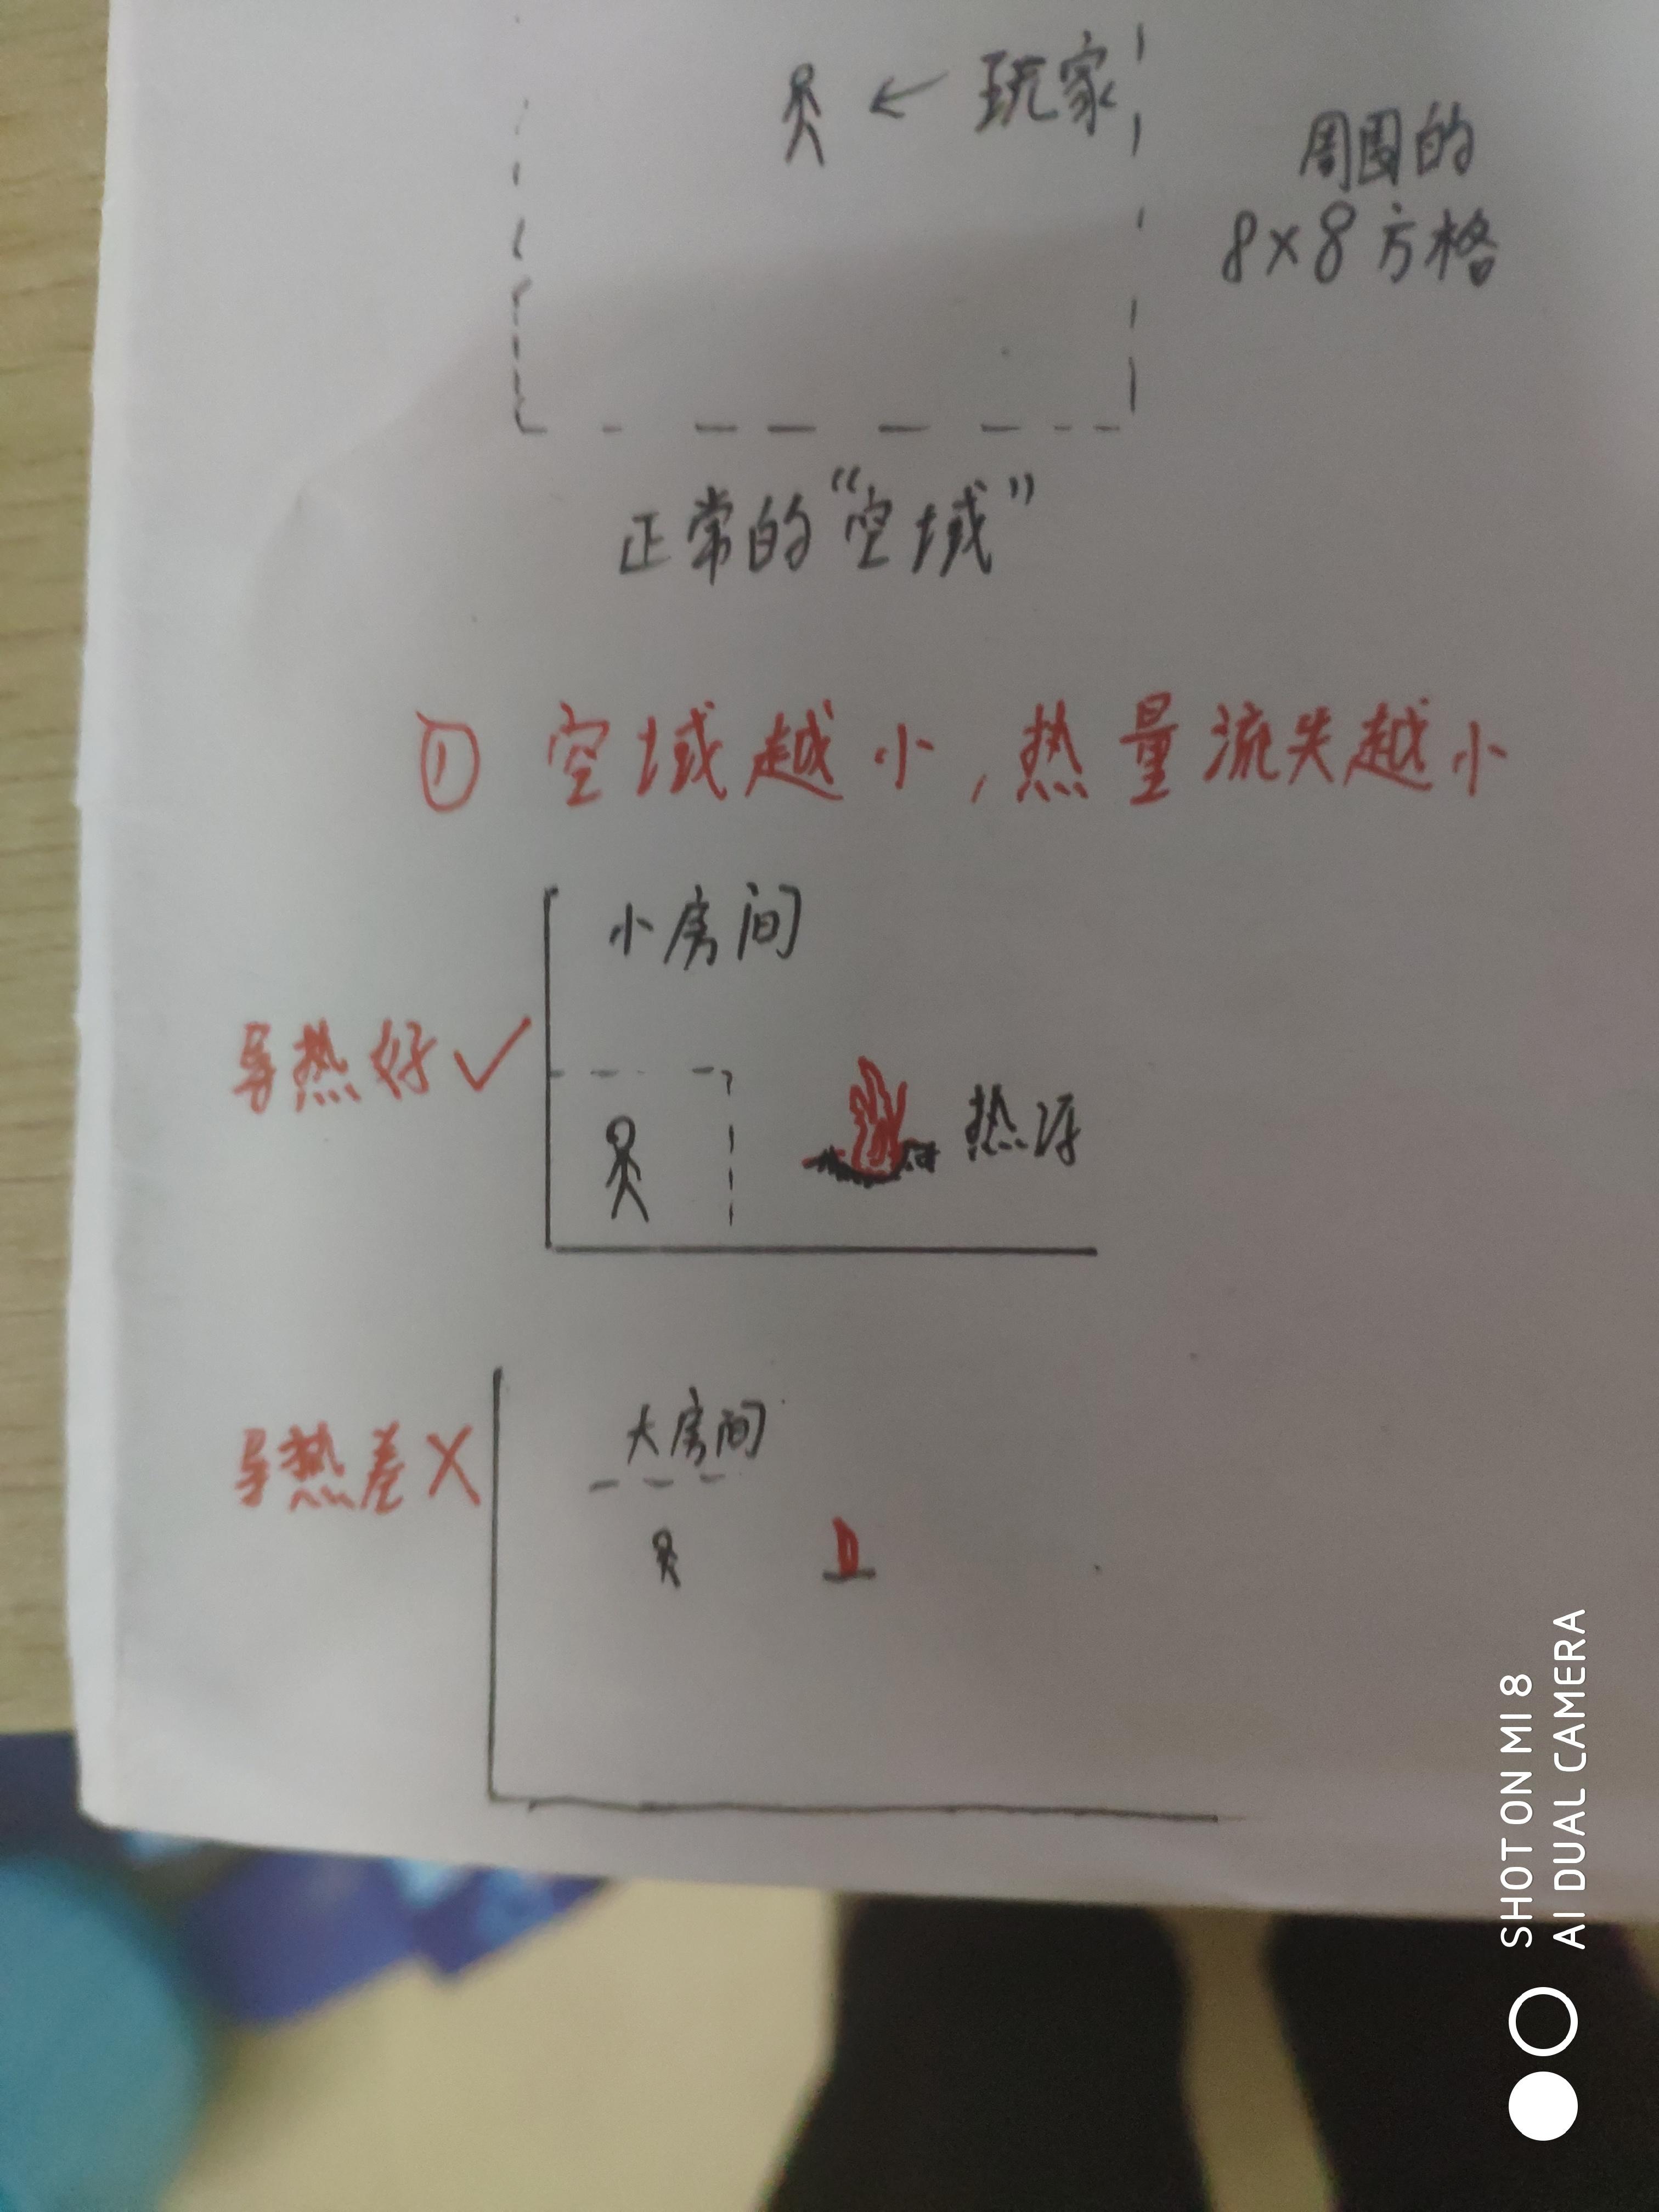 ← 玩家
周围的
8×8方格
正常的“空域”
① 空域越小,热量流失越小
小房间
导热好✓
热源
大房间
导热差✗
SHOT ON MI 8
AI DUAL CAMERA